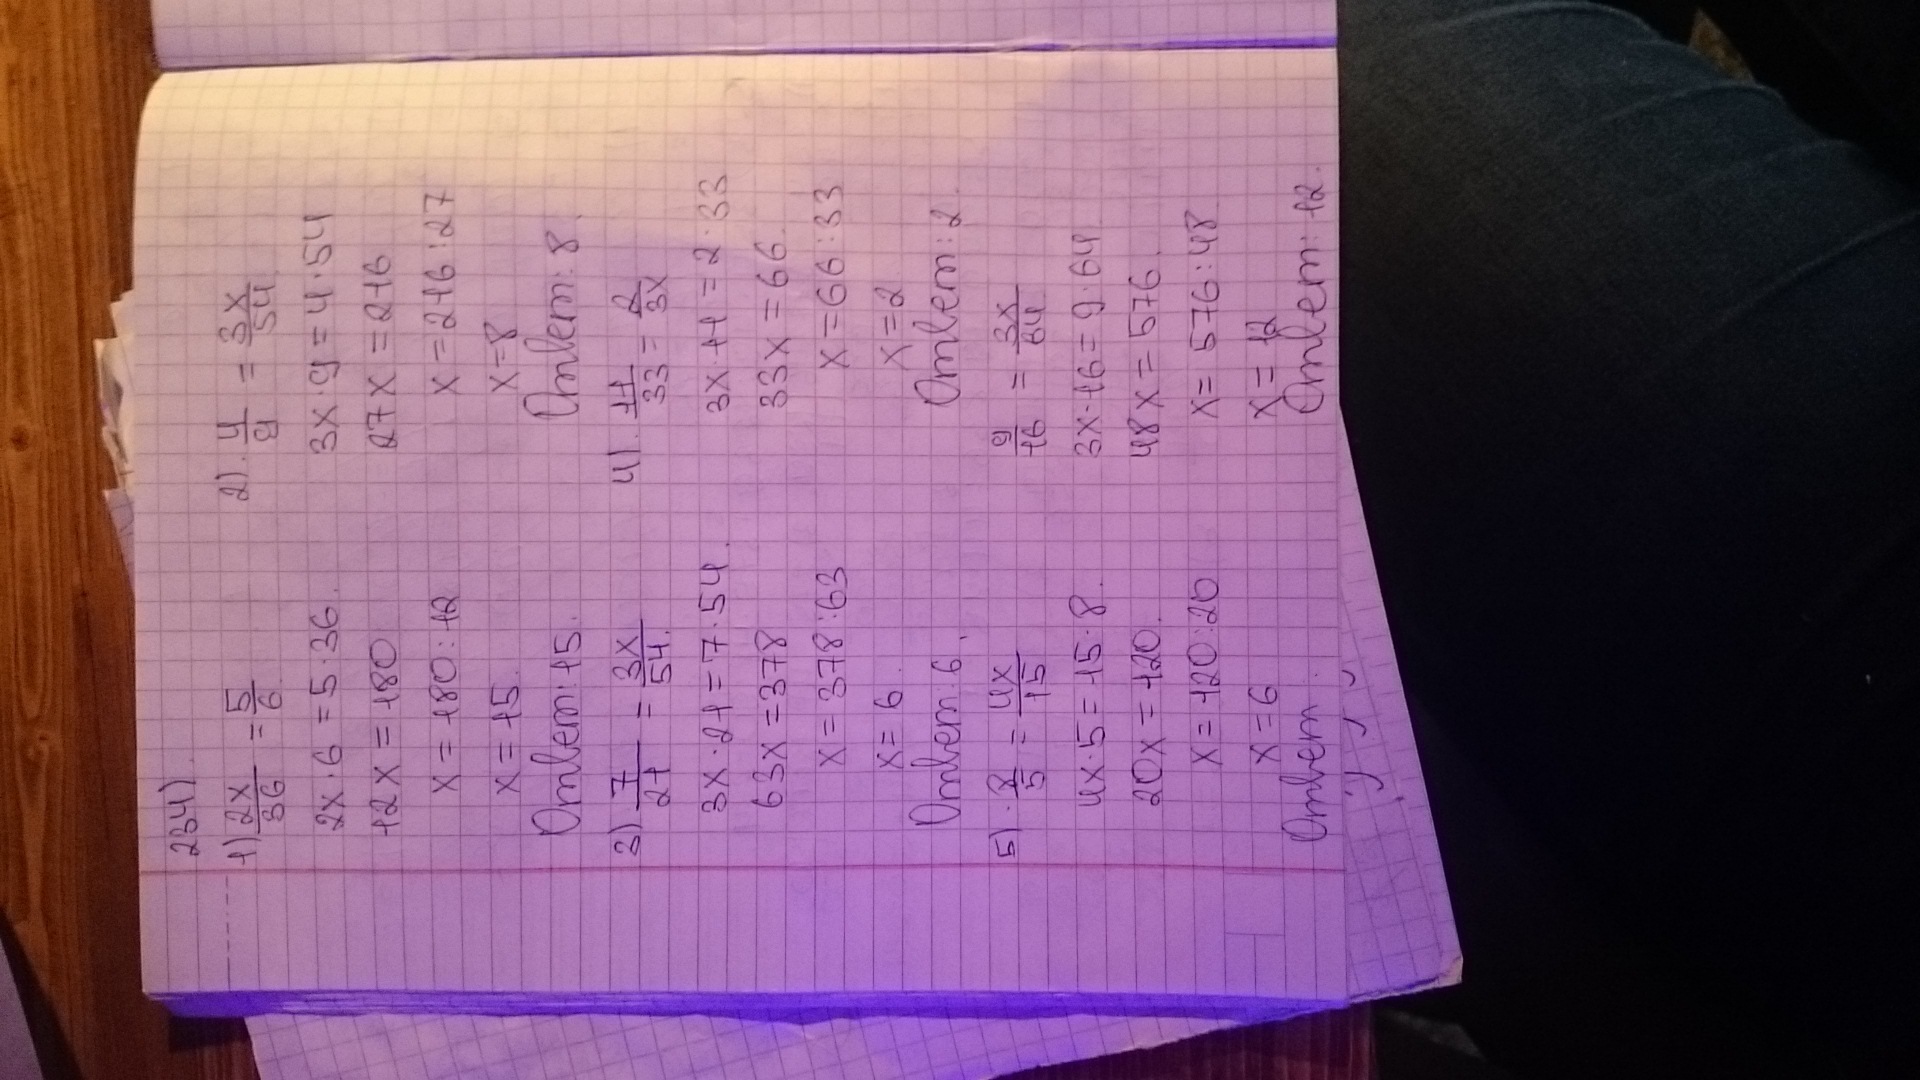 234).
1) 2x/36 = 5/6.
2x · 6 = 5 · 36.
12x = 180
x = 180 : 12
x = 15.
Ответ: 15.
2). 4/9 = 3x/54.
3x · 9 = 4 · 54
27x = 216
x = 216 : 27
x = 8
Ответ: 8.
3) 7/21 = 3x/54.
3x · 21 = 7 · 54.
63x = 378
x = 378 : 63
x = 6.
Ответ: 6.
4). 11/33 = 2/3x
3x · 11 = 2 · 33
33x = 66.
x = 66 : 33
x = 2
Ответ: 2.
5). 8/5 = 4x/15
4x · 5 = 15 · 8.
20x = 120.
x = 120 : 20
x = 6
Ответ .
9/16 = 3x/64
3x · 16 = 9 · 64.
48x = 576.
x = 576 : 48
x = 12
Ответ: 12.